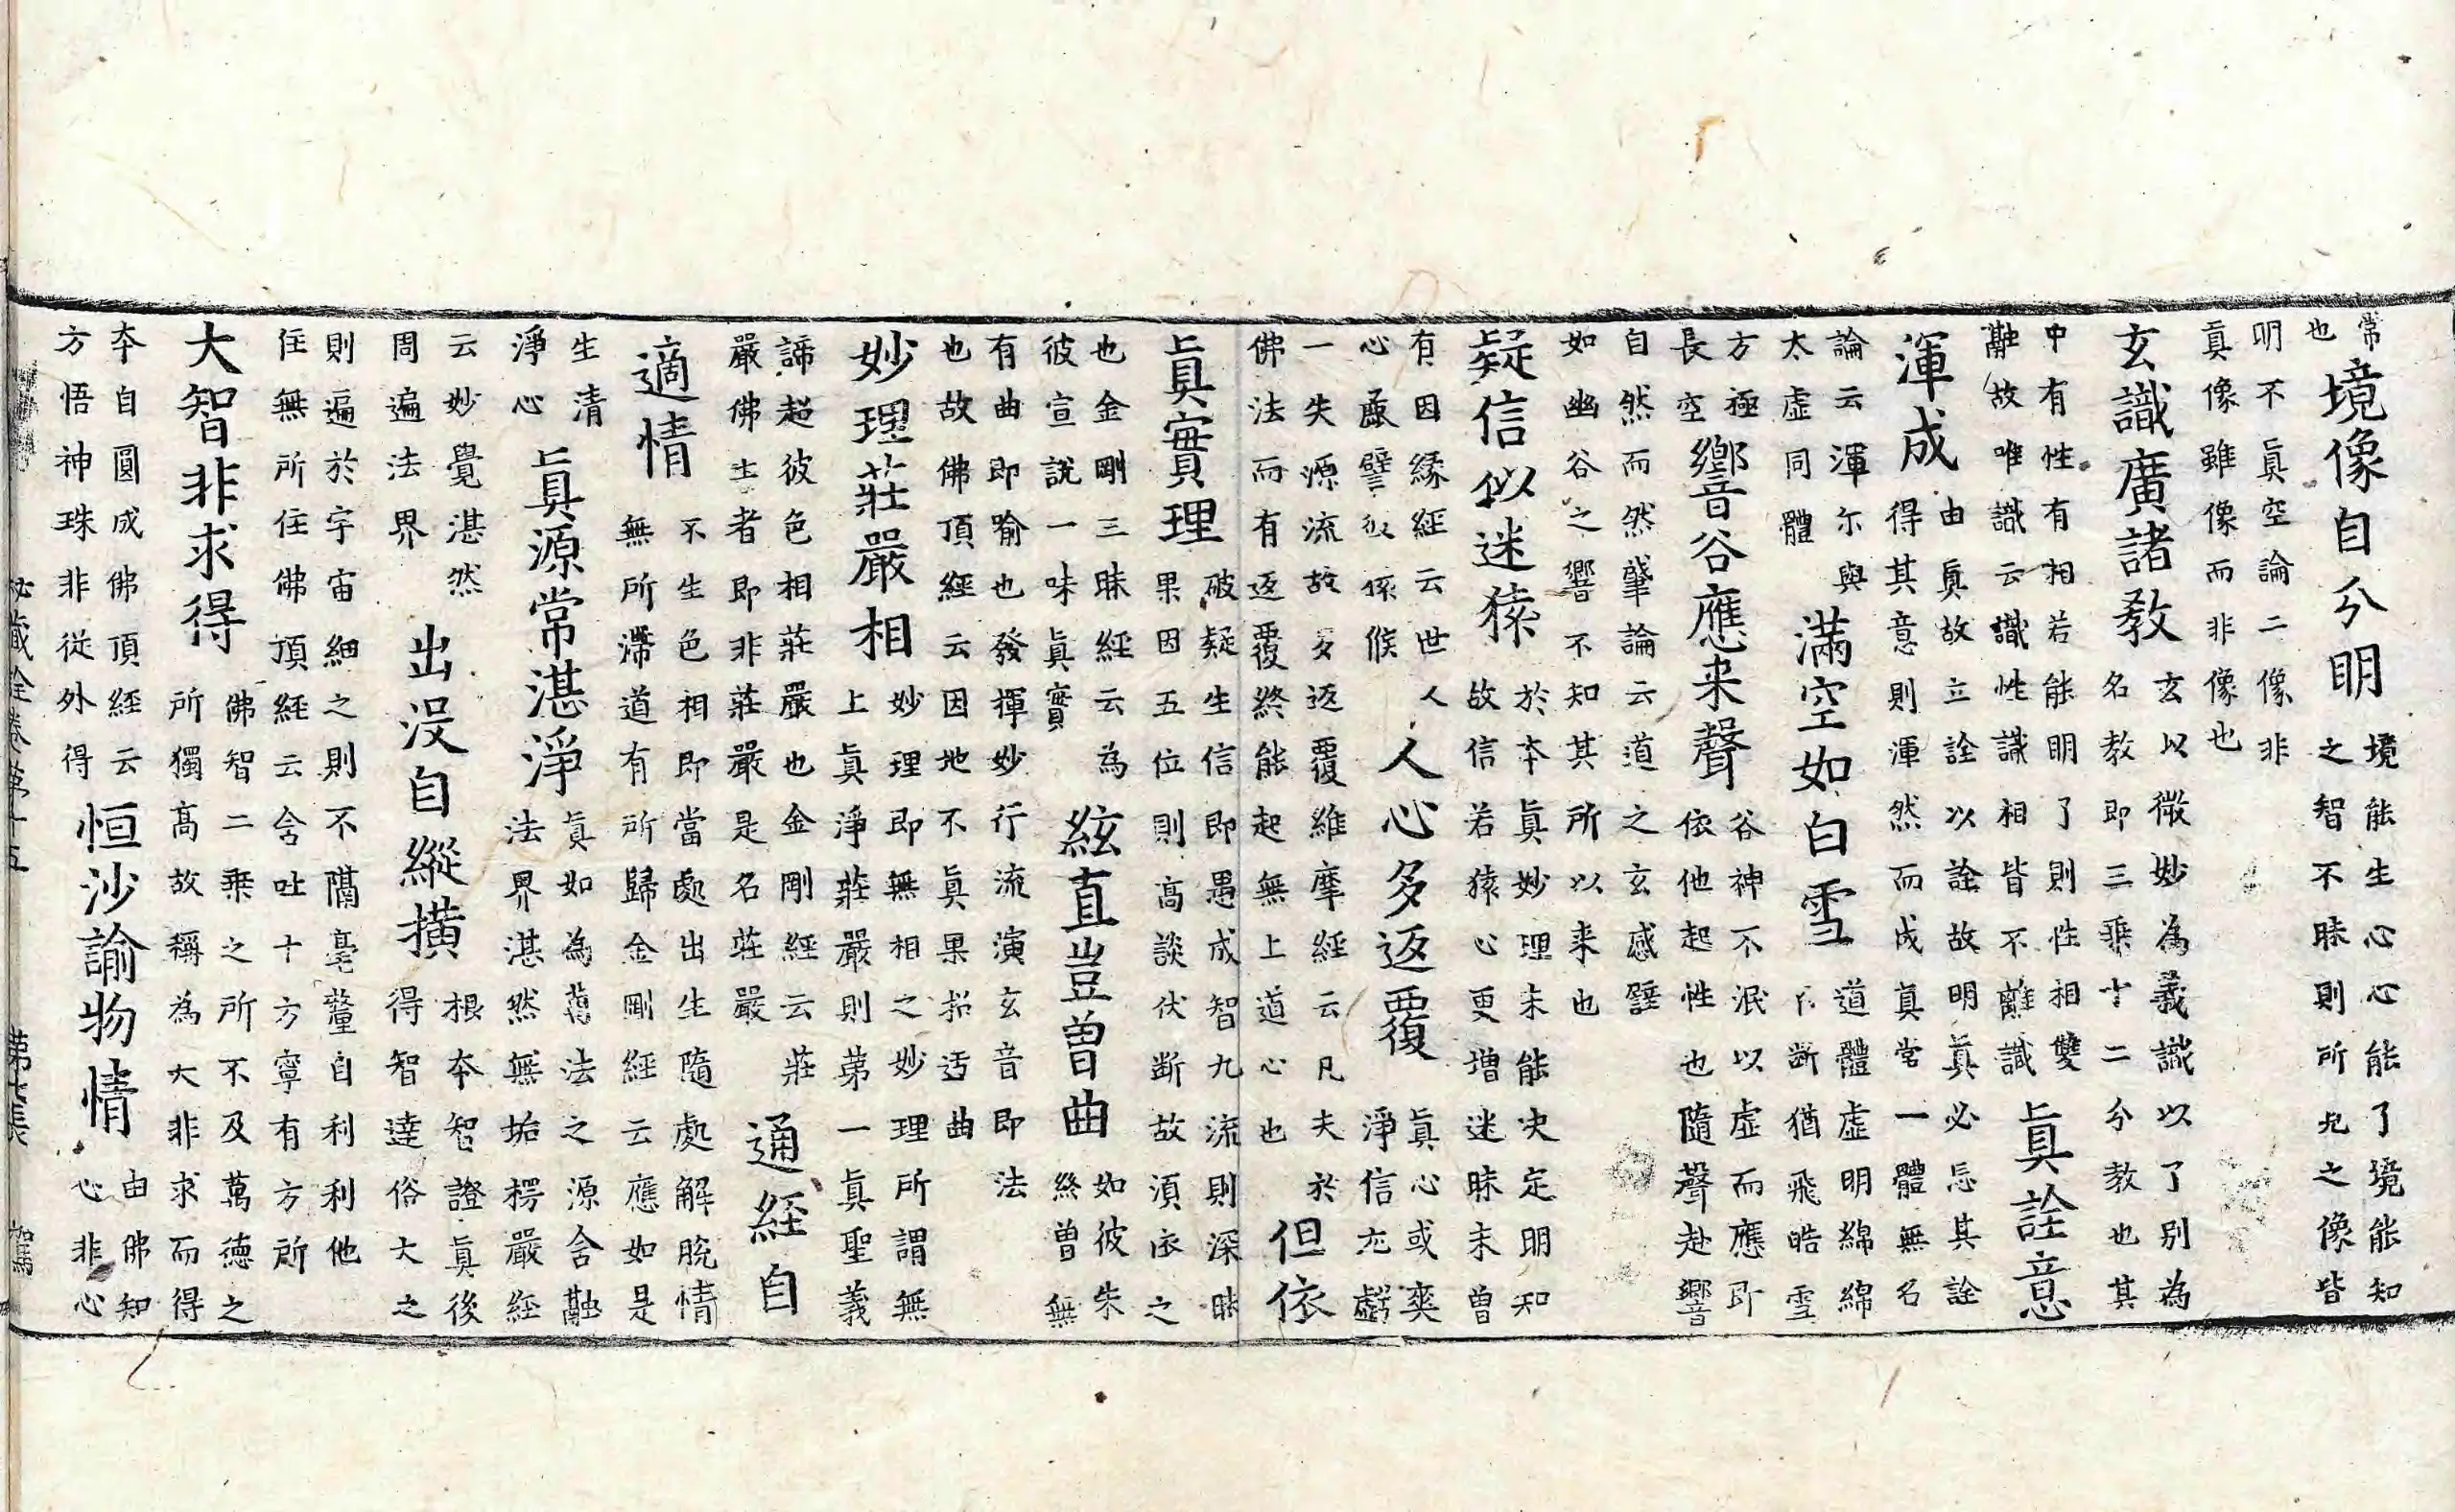 常
也
境像自分明
境能生心心能了境能知
之智不昧則所 之像皆
明不真空論二像非
真像雖像而非像也
玄識廣諸教
玄以微妙為義識以了別為
名教即三乗十二分教也其
中有性有相若能明了則性相雙
融故唯識云識性識相皆不離識
真詮意
渾成
由真故立詮以詮故明真必忘其詮
得其意則渾然而成真常一體無名
論云渾尓與
太虚同體
滿空如白雪
道體虚明綿綿
不断猶飛皓雪
方極
長空
響谷應来聲
谷神不泯以虚而應即
依他起性也隨聲赴響
自然而然肇論云道之玄感譬
如幽谷之響不知其所以来也
疑信似迷猿
於本真妙理未能决定明知
故信若猿心更増迷昧未曽
有因縁經云世人
心麤譬似 猴
人心多返覆
真心或爽
淨信尤虧
一失源流故多返覆維摩經云凡夫於
佛法而有返覆終能起無上道心也
但依
真實理
破疑生信即愚成智九流則深昧
果因五位則高談伏断故湏依之
也金剛三昧經云為
彼宣說一味真實
絃直豈曽曲
如彼朱
絲曽無
有曲即喻也發揮妙行流演玄音即法
也故佛頂經云因地不真果招迂曲
妙理莊嚴相
妙理即無相之妙理所謂無
上真淨莊嚴則第一真聖義
諦超彼色相莊嚴也金剛經云莊
嚴佛土者即非莊嚴是名莊嚴
通経自
適情
不生色相即當處出生隨處解脫情
無所滯道有所歸金剛經云應如是
生清
淨心
真源常湛淨
真如為萬法之源含融
法界湛然無垢楞嚴経
云妙覺湛然
周遍法界
出没自縱横
根本智證真後
得智達俗大之
則遍於宇宙細之則不隔毫釐自利利他
住無所住佛頂經云含吐十方寧有方所
大智非求得
佛智二乗之所不及萬徳之
所獨高故稱為大非求而得
本自圓成佛頂経云
方悟神珠非從外得
恒沙諭物情
由佛知
心非心
秘蔵詮卷第十五 第七張 駕